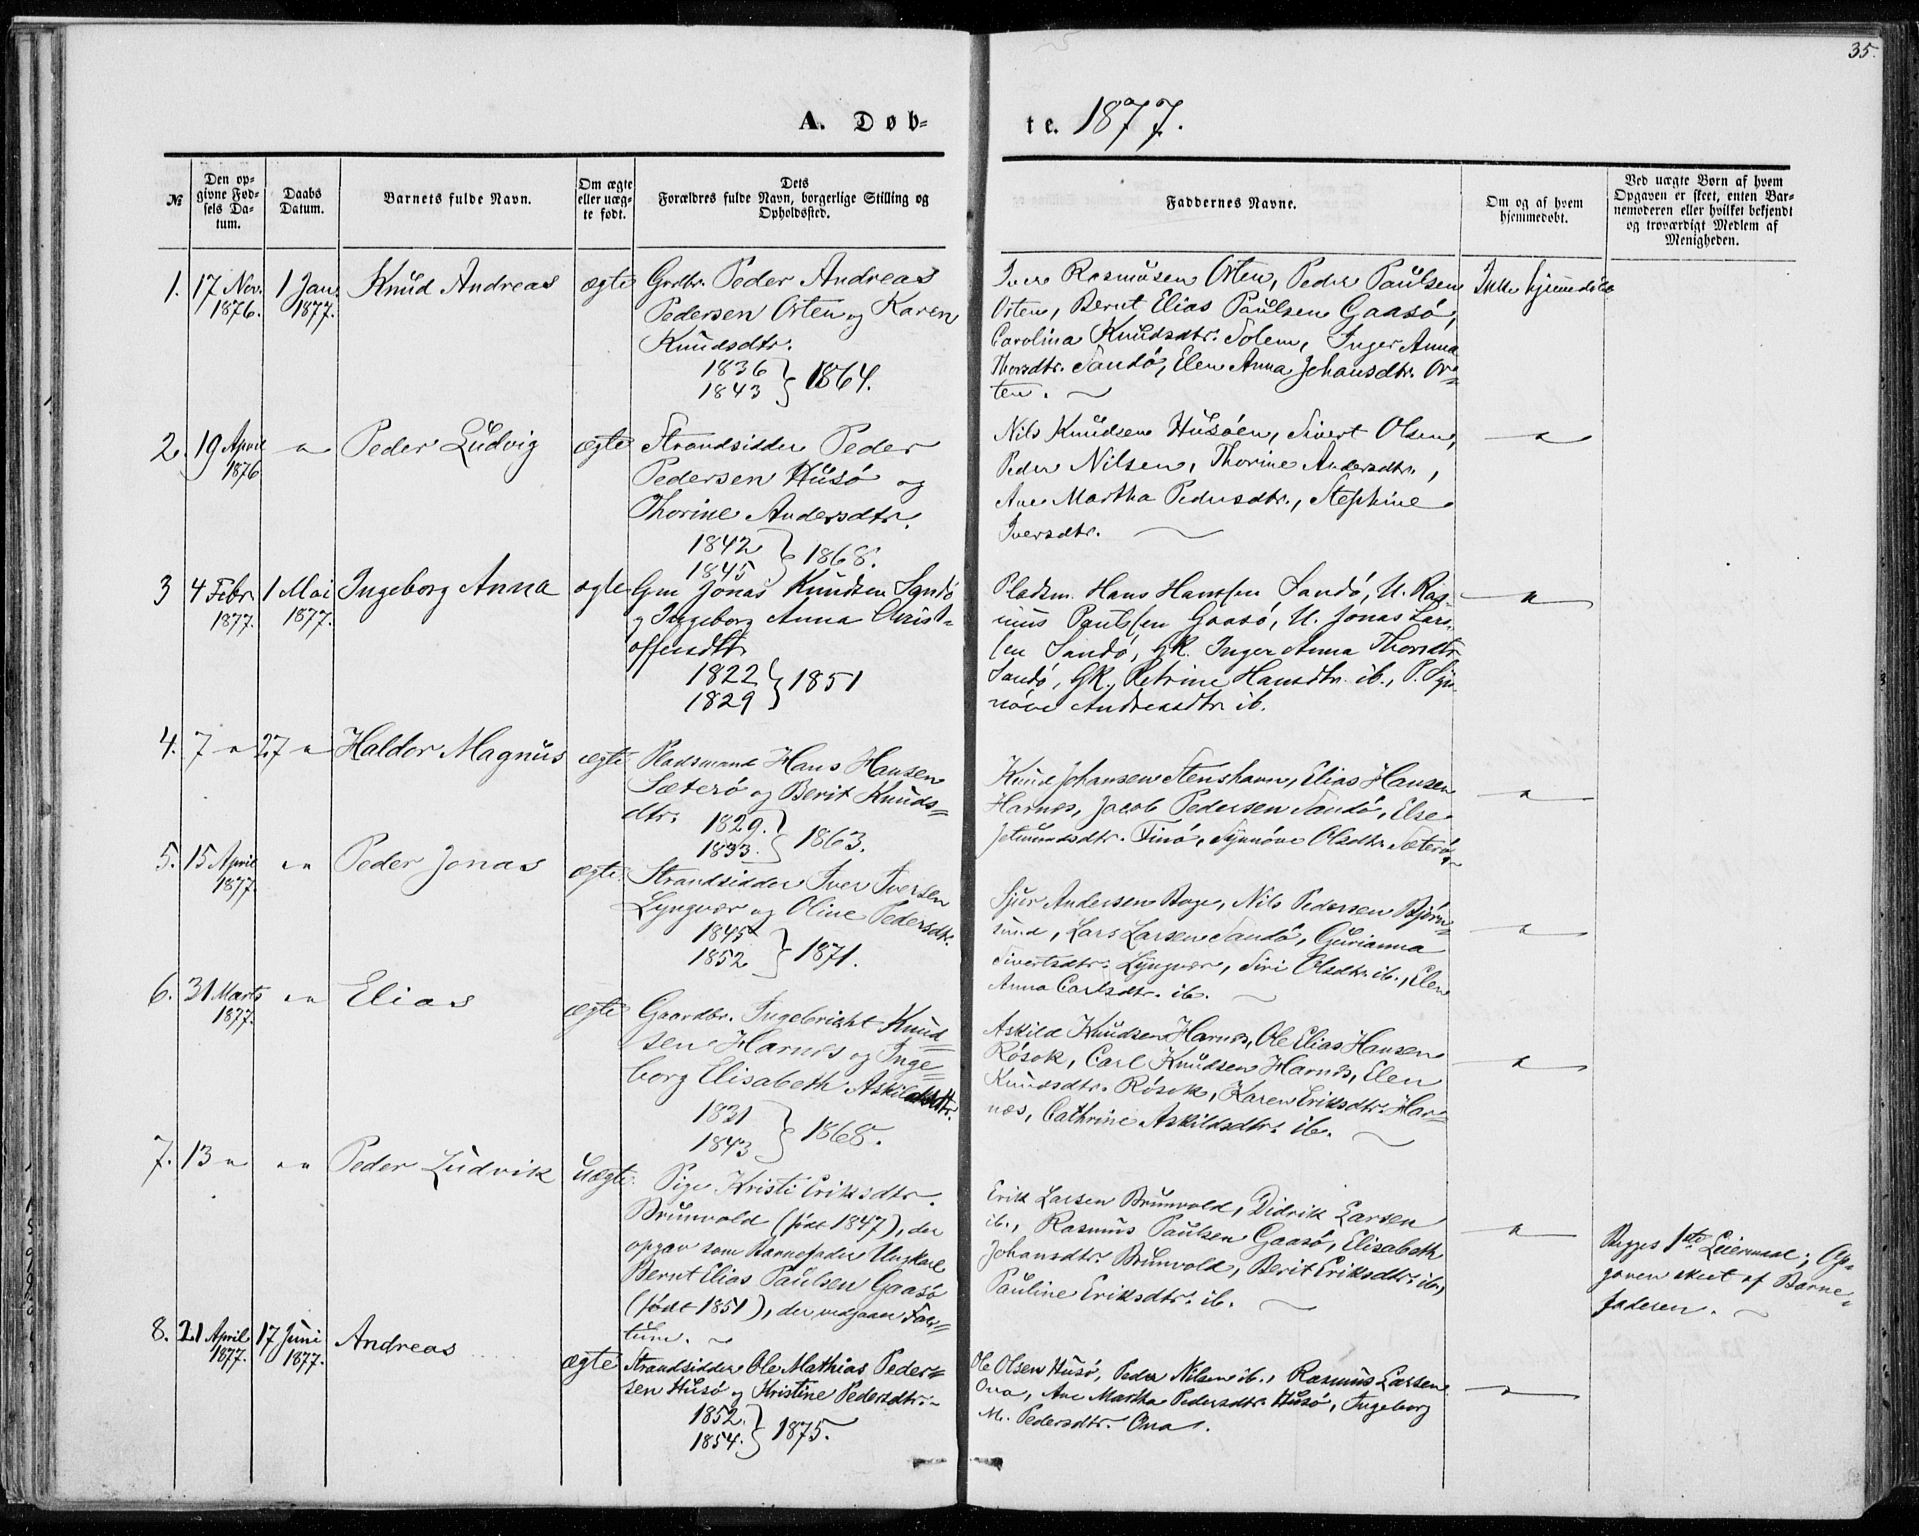 35.
A. Døb-
te. 1877.
№
Den op-
givne Fød-
sels Da-
tum.
Daabs
Datum.
Barnets fulde Navn.
Om ægte
eller uæg-
te født.
Dets
Forældres fulde Navn, borgerlige Stilling og
Opholdssted.
Faddernes Navne.
Om og af hvem
hjemmedøbt.
Ved uægte Børn af hvem
Opgaven er skeet, enten Bar-
nemoderen eller hvilket bekjendt
og troværdigt Medlem af
Menigheden.
1. 17 Nov. 1876. 1 Jan. 1877. Knud Andreas ægte
Grdbr. Peder Andreas
Pedersen Orten og Karen
Knudsdtr.
1836
1843 } 1864.
Iver Rasmusen Orten, Peder Paulsen
Orten, Bernt Elias Paulsen Gaasø,
Carolina Knudsdtr. Solem, Inger Anna
Thorsdtr. Sandø, Elen Anna Johansdtr. Or=
ten.
Ikke hjemmedøbt
2. 19 April 1876 " Peder Ludvig ægte
Strandsidder Peder
Pedersen Husø og
Thorine Andersdtr.
1842
1845 } 1868.
Nils Knudsen Husøen, Sivert Olsen,
Peder Nilsen, Thorine Andersdtr.,
Ane Martha Pedersdtr., Stephine
Iversdtr.
"
3 4 Febr. 1877. 1 Mai 1877. Ingeborg Anna ægte
Gm Jonas Knudsen Sandø
og Ingeborg Anna Christ-
offersdtr
1822
1829 } 1851
Pladsm. Hans Hanssen Sandø, U. Ras-
mus Paulssen Gaasø, U. Jonas Lars-
sen Sandø, GK. Inger Anna Thorsdtr
Sandø, GK. Petrine Hansdtr. ib., P. Syn-
nøve Andreasdtr ib.
"
4. 7 " 27 " Haldor Magnus ægte
Pladsmand Hans Hansen
Sæterø og Berit Knuds=
dtr.
1829.
1833. } 1863.
Knud Johansen Stenshavn, Elias Hansen
Harnes, Jacob Pedersen Sandø, Else
Jetmundsdtr. Finø, Synnøve Olsdtr. Sæterø.
"
5. 15 April 1877. " " Peder Jonas ægte.
Strandsidder Iver Iversen
Lyngvær og Oline Pedersdtr.
1845
1852 } 1871.
Sjur Andersen Boge, Nils Pedersen Bjørn=
sund, Lars Larsen Sandø, Gurianna
Sivertsdtr. Lyngvær, Siri Olsdtr. ib., Elen
Anna Carlsdtr. ib.
"
6. 31 Marts 1877. " " Elias ægte
Gaardbr. Ingebricht Knud=
sen Harnes og Inge=
borg Elisabeth Askildsdtr.
1831
1843 } 1868.
Askild Knudsen Harnes, Ole Elias Hansen
Røsok, Carl Knudsen Harnes, Elen
Knudsdtr. Røsok, Karen Eriksdtr. Har=
næs, Cathrine Askildsdtr. ib.
"
7. 13 " " " Peder Ludvik Uægte.
Pige Kristi Eriksdtr.
Brunvold (født 1847), der
opgav som Barnefader Ungkarl
Bernt Elias Paulsen Gaasø
(født 1851), der vedgaaer Fac=
tum.
Erik Larsen Brunvold, Didrik Larsen
ib., Rasmus Paulsen Gaasø, Elisabeth
Johansdtr. Brunvold, Berit Eriksdtr. ib.,
Pauline Eriksdtr. ib.
"
Begges 1ste Leiermaal; Op=
gaven skeet af Barne=
faderen.
8. 21 April 1877. 17 Juni 1877. Andreas ægte
Strandsidder Ole Mathias Peder=
sen Husø og Kristine Pedersdtr.
1852.
1854. } 1875.
Ole Olsen Husø, Peder Nilsen ib., Rasmus Larsen
Ona, Ane Martha Pedersdtr. Husø, Ingeborg
M. Pedersdtr. Ona.
"